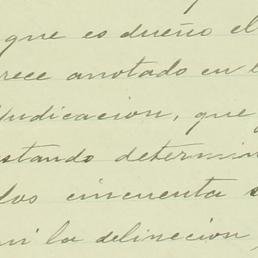 que es dueño el
rece anotado en l
judicacion, que
stando determin
dos cincuenta s
ni la delinecion,